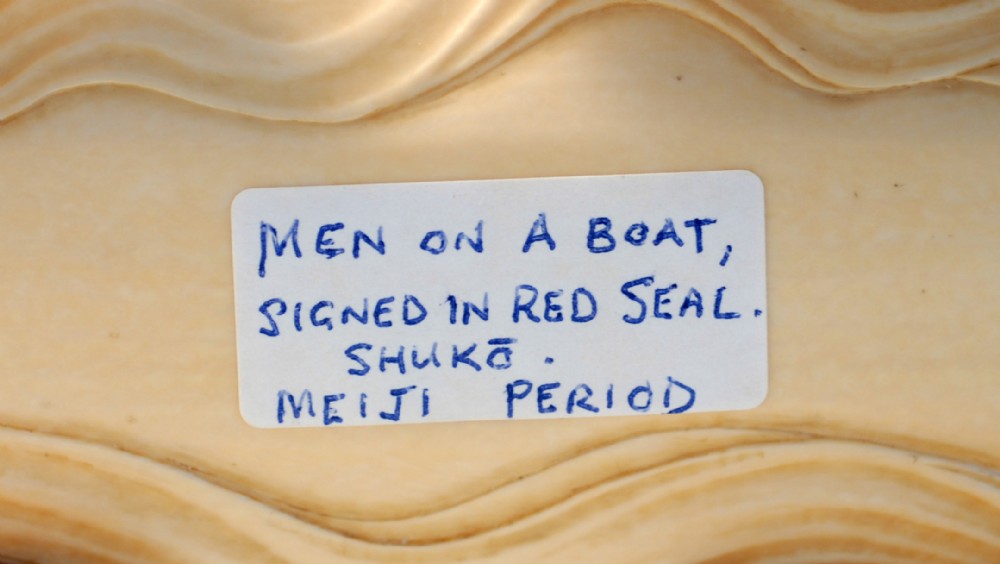 MEN ON A BOAT,
SIGNED IN RED SEAL.
SHUKŌ.
MEIJI PERIOD